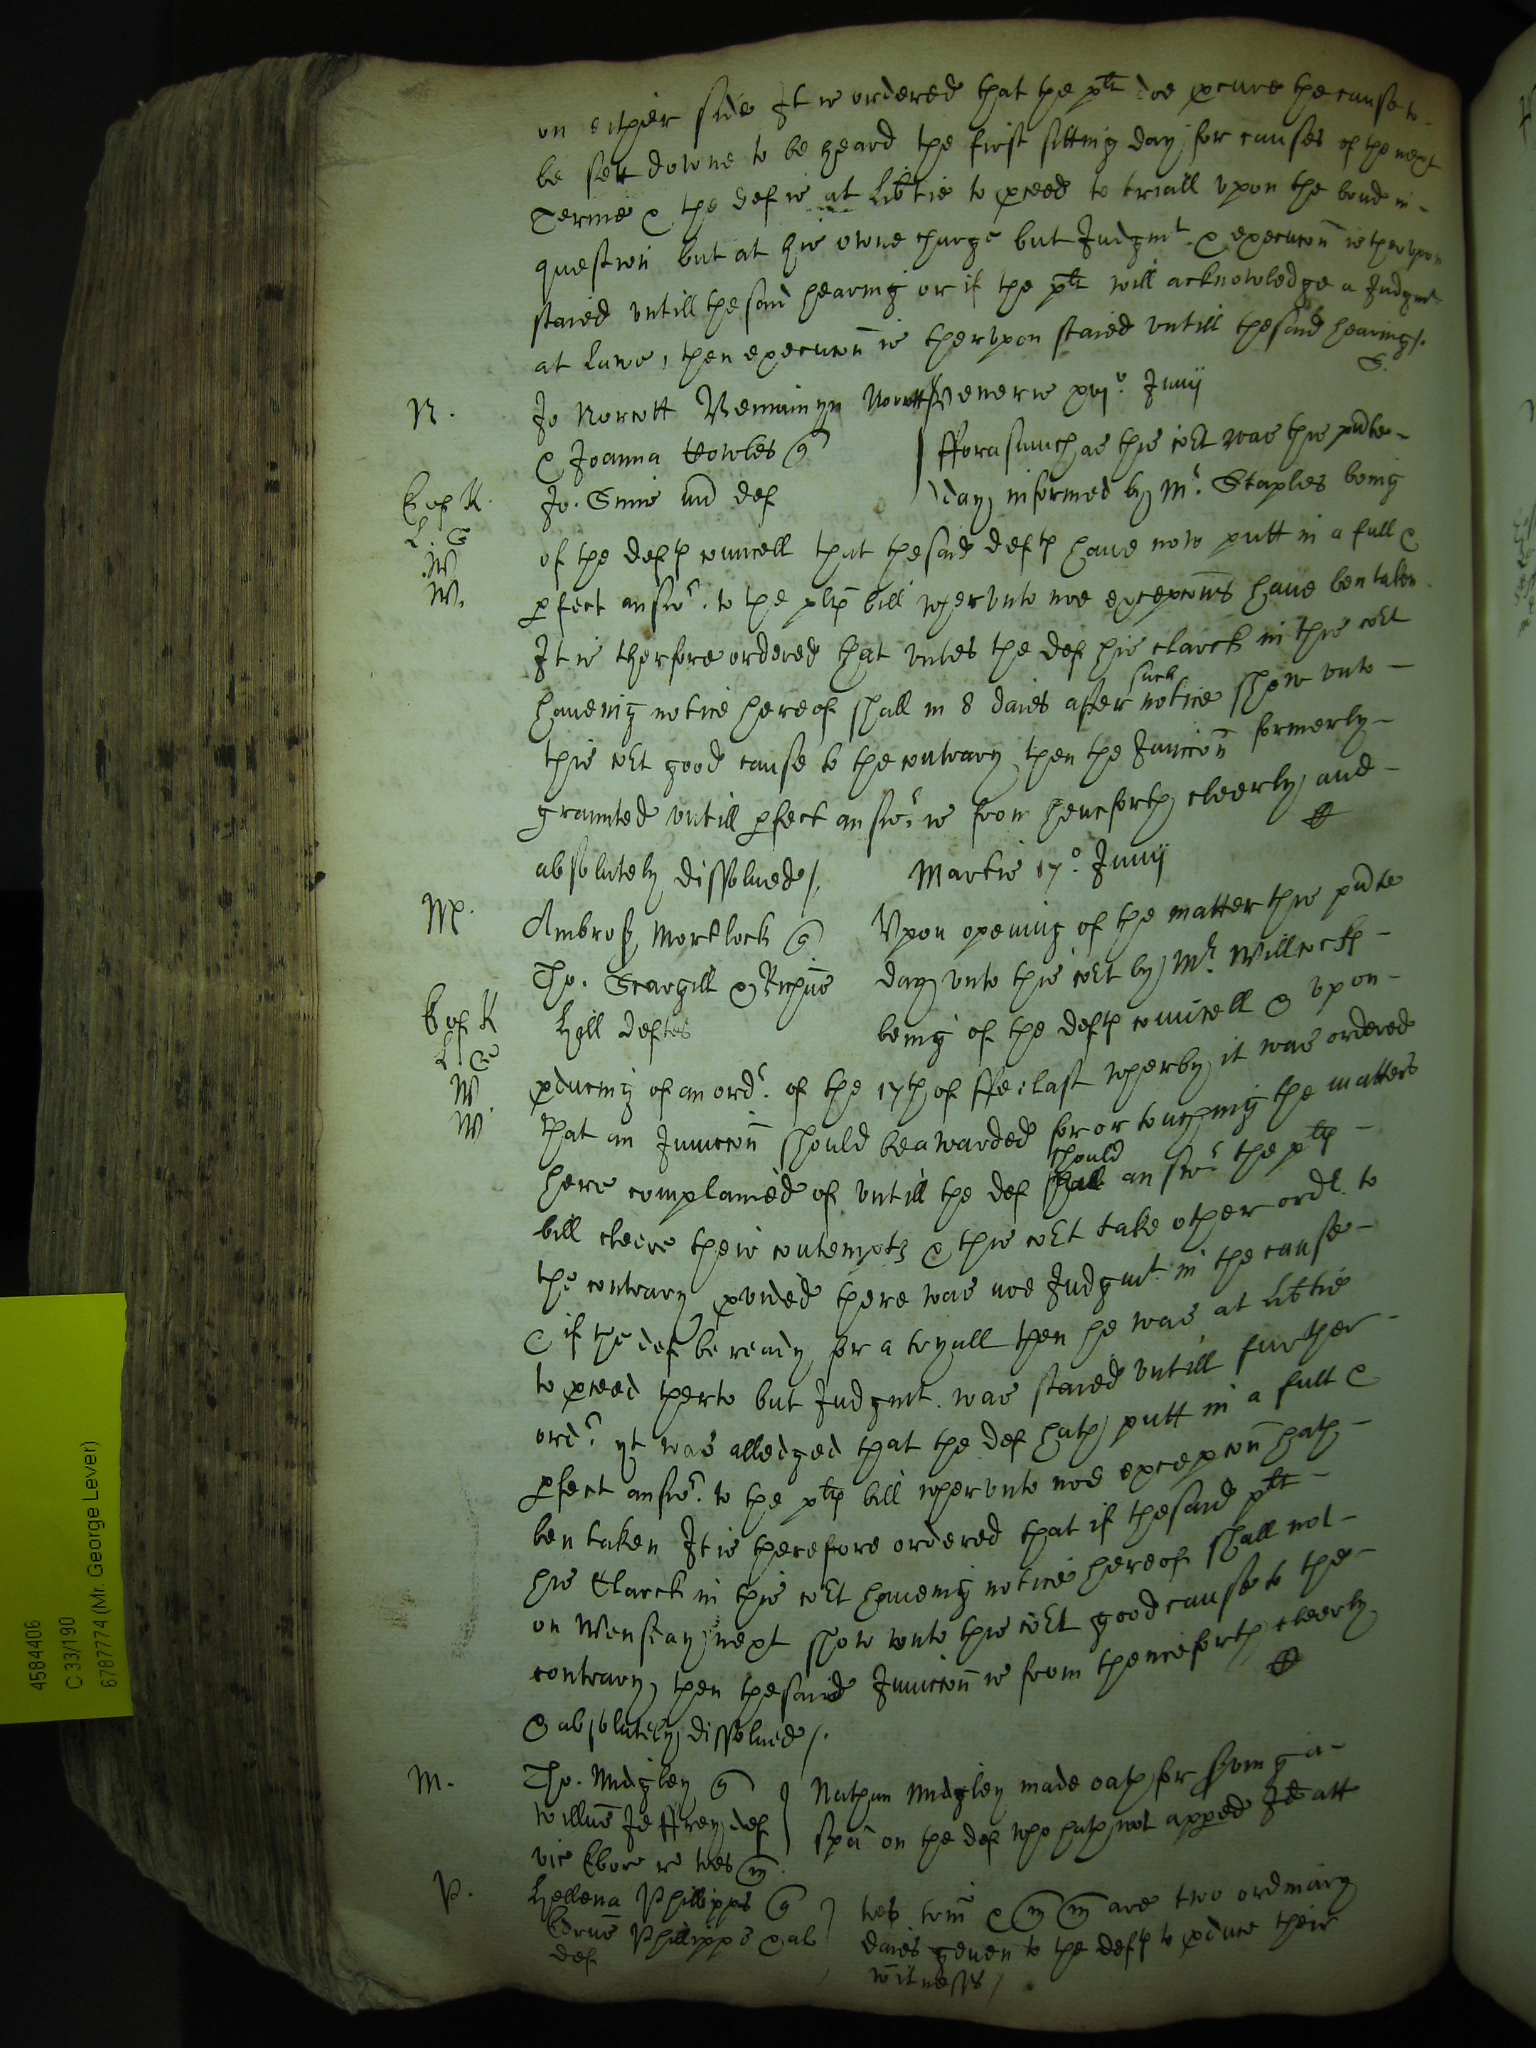 on either side It is ordered that the plt doe pcure the cause to
be sett downe to be heard the first sitting day for causes of the next
Terme & the def is at Libtie to pceed to triall vpon the bond in
question but at his owne charge but Judgmt & execucon is thervpon
staied vntill the said hearing or if the plt will acknowledge a Judgmt
at Lawe, then execucon is thervpon staied vntill the said hearing /.
S.
N.
Jo Norcott Norcott
& Joanna q
Jo. def
Veneris xvjo Junij
Fforasmuch as this Cot was this pnte
day informed by Mr. Staples being
E of K.
L. C
W
W.
of the deftes councell that the said deftes have now putt in a full &
pfect answr. to the pltes bill whervnto noe excepcons have ben taken
It is therfore ordered that vnles the def his clarck in this Cot
haveing notice hereof shall in 8 daies after such notice shew vnto
this Cot good cause to the contrary then the Iniuccon formerly
graunted vntill pfect answr. is from henceforth cleerly and
absolutely dissolued /.
Martis 17o. Junij
M.
Ambrose Mortlock q
Tho. Scargill & Richus
Hill deftes
Vpon opening of the matter this pnte
day vnto this Cot by Mr. Willcocks
being of the deftes councell & vpon
E of K
L. C
W
W
pduceing of an ordr. of the 17th of ffe: last wherby it was ordered
that an Iniuccon should be awarded for or touching the matters
here complained of vntill the def should answr the pltes
bill cleere their contempts & this Cot take other ordr. to
the contrary pvided there was noe Judgmt. in the cause
& if the def be ready for a tryall then he was at Libtie
to pceed therto but Judgmt. was staied vntill further
ordr. yt was alledged that the def hath putt in a full &
pfect answr. to the pltes bill whervnto noe excepcon hath
ben taken It is therefore ordered that if the said plt
his Clarck in this Cot haveing notice hereof shall not
on Wensday next shew vnto this Cot good cause to the
contrary, then the said Iniuccon is from thenceforth cleerly
& absolutely dissolued /.
M.
Tho. Midgley q
Willus Jeffrey def
Nathan Midgley made oath for serving a
spa on the def who hath not apped Io att
vic Ebor
P.
Hellena Phillipps q
Edrus Phillipps & al
def
are two ordinary
daies geuen to the deftes to pduce their
witnesses /
4584406
C 33/190
6787774 (Mr. George Lever)